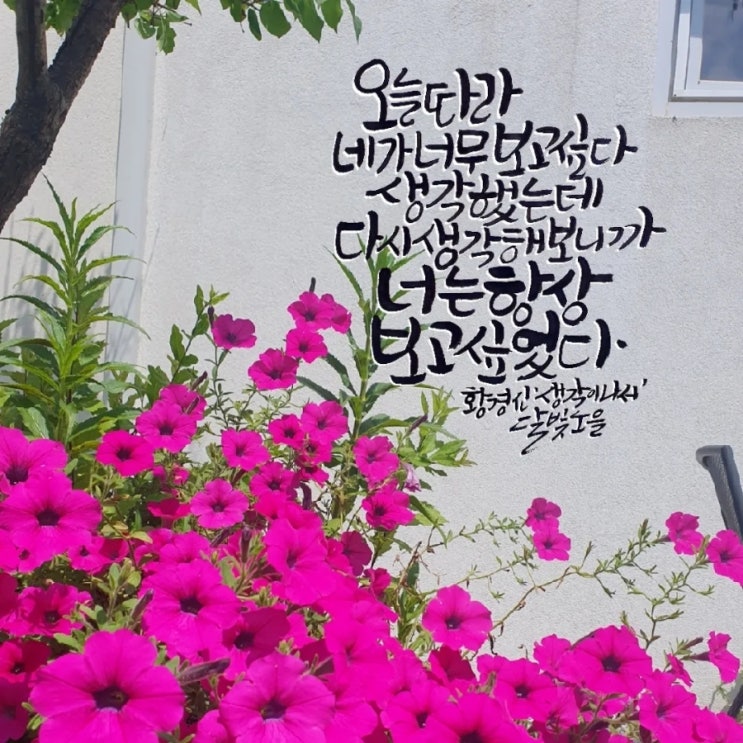 오늘따라
네가 너무 보고싶다
생각했는데
다시 생각해보니까
너는 항상
보고싶었다.
황경신 '생각이나서'
달빛노을